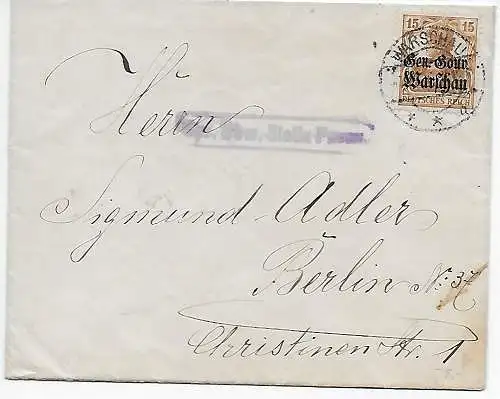 15 15
WARSCHAU
Gen.-Gouv.
Warschau
DEUTSCHES REICH
Herrn
Sigmund Adler
Berlin No: 37
Christinen Str. 1